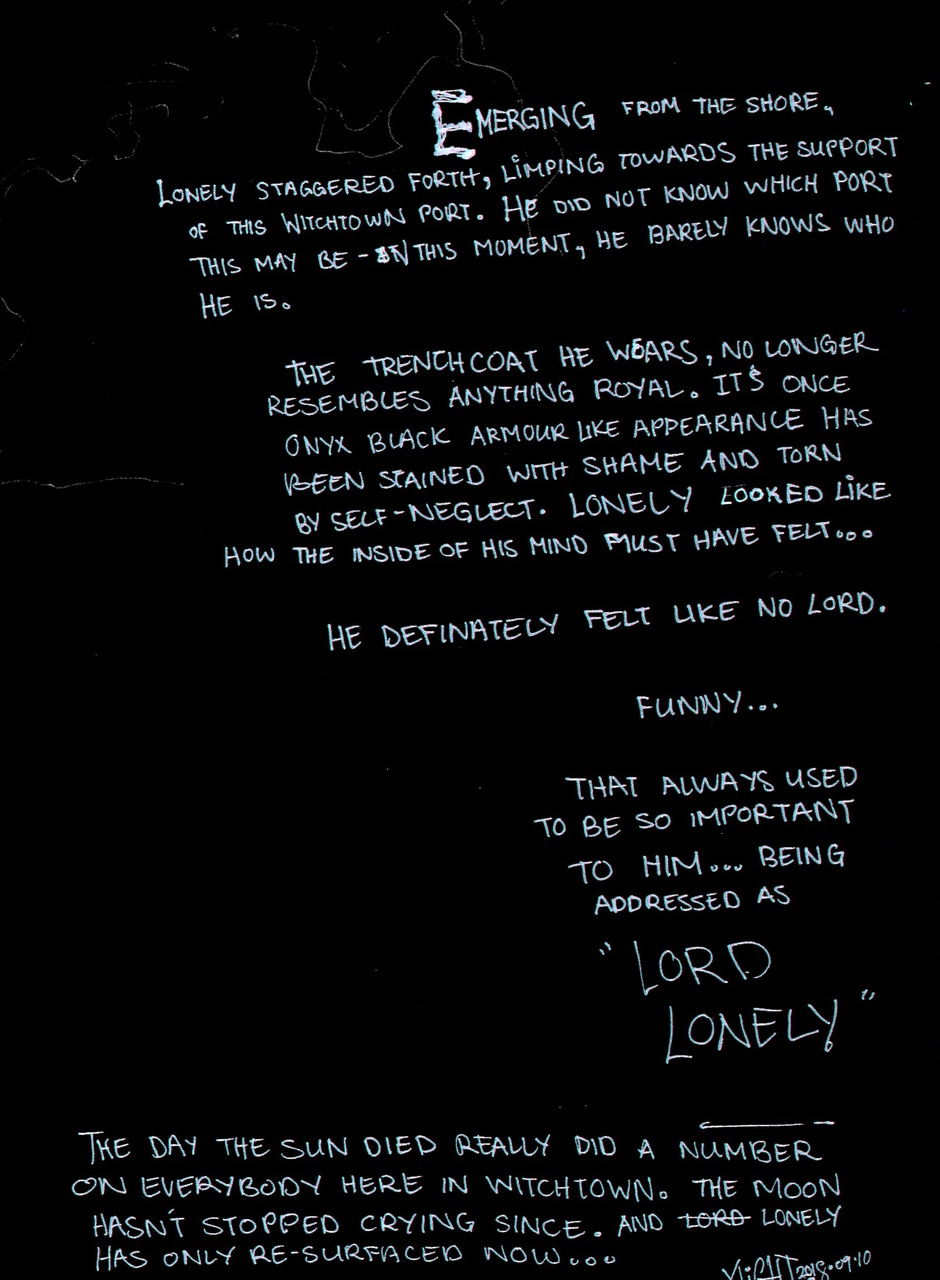 EMERGING FROM THE SHORE,
LONELY STAGGERED FORTH, LIMPING TOWARDS THE SUPPORT
OF THIS WITCHTOWN PORT. HE DID NOT KNOW WHICH PORT
THIS MAY BE - IN THIS MOMENT, HE BARELY KNOWS WHO
HE IS.
THE TRENCHCOAT HE WEARS, NO LONGER
RESEMBLES ANYTHING ROYAL. IT'S ONCE
ONYX BLACK ARMOUR LIKE APPEARANCE HAS
BEEN STAINED WITH SHAME AND TORN
BY SELF-NEGLECT. LONELY LOOKED LIKE
HOW THE INSIDE OF HIS MIND MUST HAVE FELT...
HE DEFINATELY FELT LIKE NO LORD.
FUNNY...
THAT ALWAYS USED
TO BE SO IMPORTANT
TO HIM... BEING
ADDRESSED AS
"LORD
LONELY"
THE DAY THE SUN DIED REALLY DID A NUMBER
ON EVERYBODY HERE IN WITCHTOWN. THE MOON
HASN'T STOPPED CRYING SINCE. AND LORD LONELY
HAS ONLY RE-SURFACED NOW...
2018.09.10